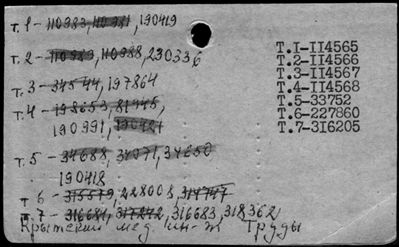 т. 1 - 110383, 110381, 190419
т. 2 - 110983, 110988, 230336
т. 3 - 34544, 197864
т. 4 - 198653, 81945,
190991, 190421
т. 5 - 34688, 34071, 34650
190418
т 6 - 315579, 228008, 314747
т. 7 - 316681, 317242, 316683, 318362
Крымский мед. ин-т Труды
Т.I-II4565
Т.2-II4566
Т.3-II4567
Т.4-II4568
Т.5-33752
Т.6-227860
Т.7-3I6205